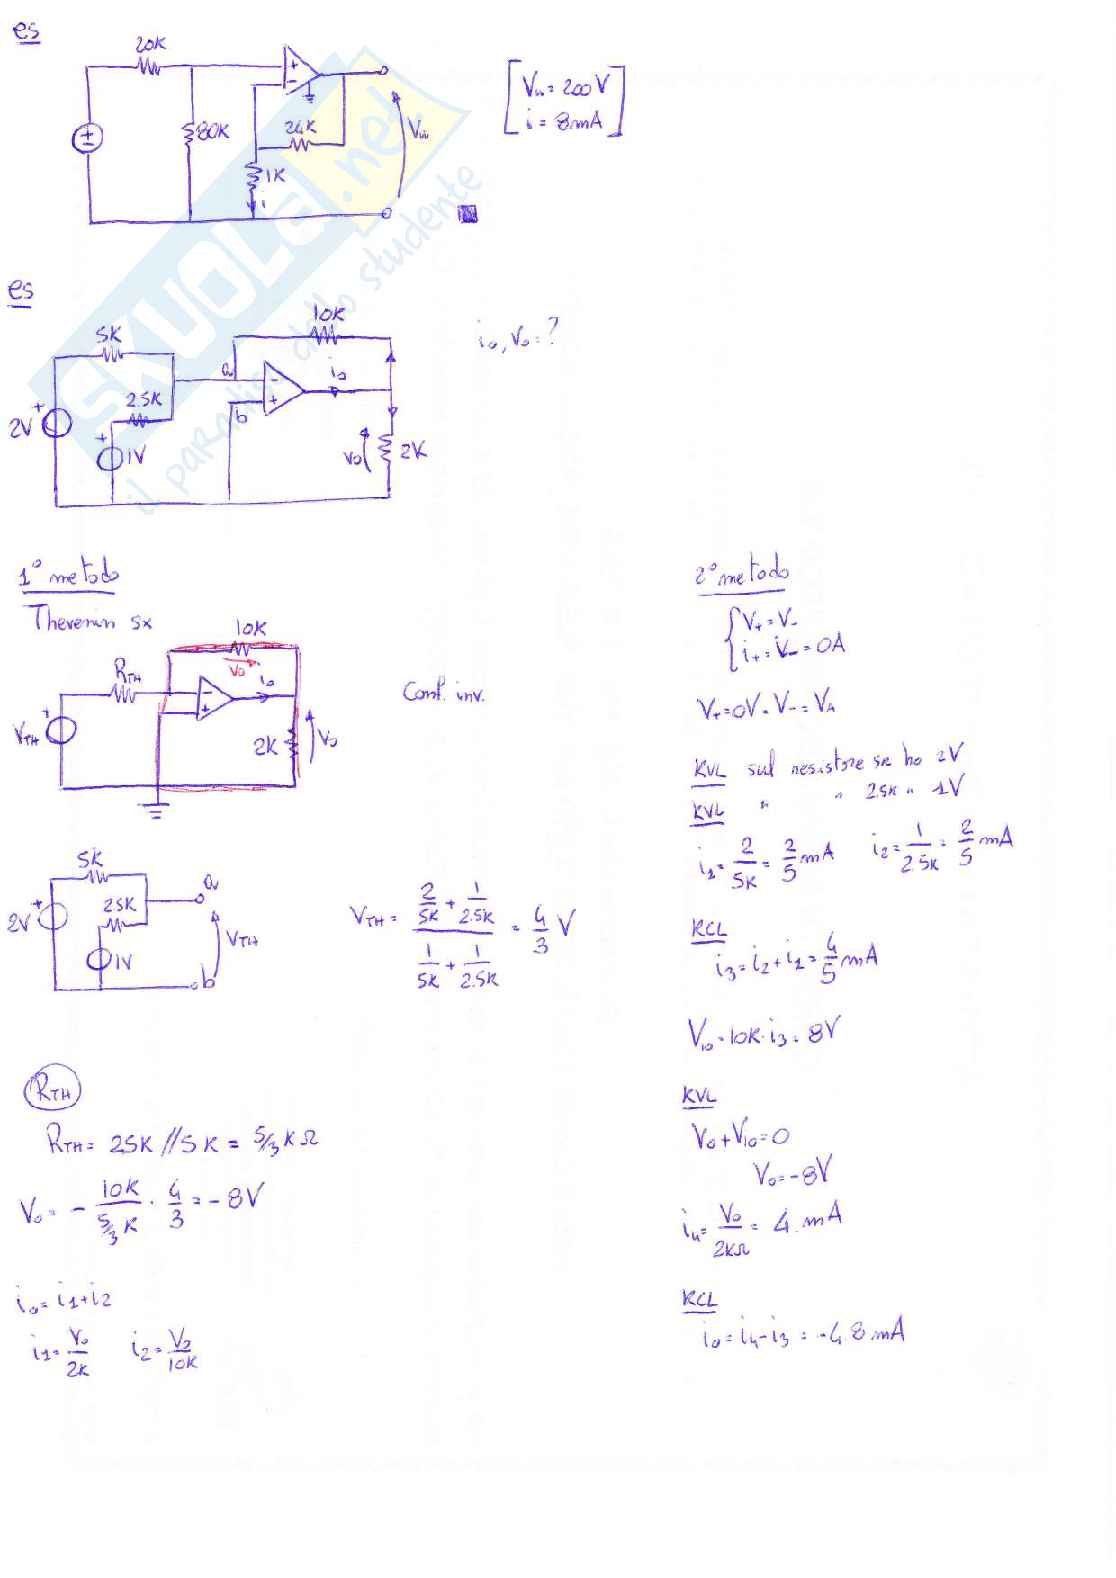 es
20K
80K
24K
1K
i
Vu
Vu = 200V
i = 8mA
SKUOLA.net
il paradiso dello studente
es
io, Vo = ?
5K
10K
2V
2.5K
1V
a
b
io
Vo
2K
1° metodo
Thevenin sx
10K
RTH
Vo
io
VTH
2K
Vo
Conf. inv.
5K
2V
2.5K
1V
a
b
VTH
VTH = (2/5K + 1/2.5K) / (1/5K + 1/2.5K) = 4/3 V
RTH
RTH = 2.5K // 5K = 5/3 KΩ
Vo = - 10K / 5/3 K · 4/3 = - 8V
io = i1 + i2
i1 = Vo/2K i2 = Vo/10K
2° metodo
V+ = V-
i+ = i- = 0A
V+ = 0V = V- = VA
KVL sul resistore 5K ho 2V
KVL " " 2.5K " 1V
i1 = 2/5K = 2/5 mA i2 = 1/2.5K = 2/5 mA
KCL
i3 = i2 + i1 = 4/5 mA
V10 = 10K · i3 = 8V
KVL
Vo + V10 = 0
Vo = -8V
i4 = Vo/2KΩ = 4 mA
KCL
io = i4 - i3 = -4.8 mA